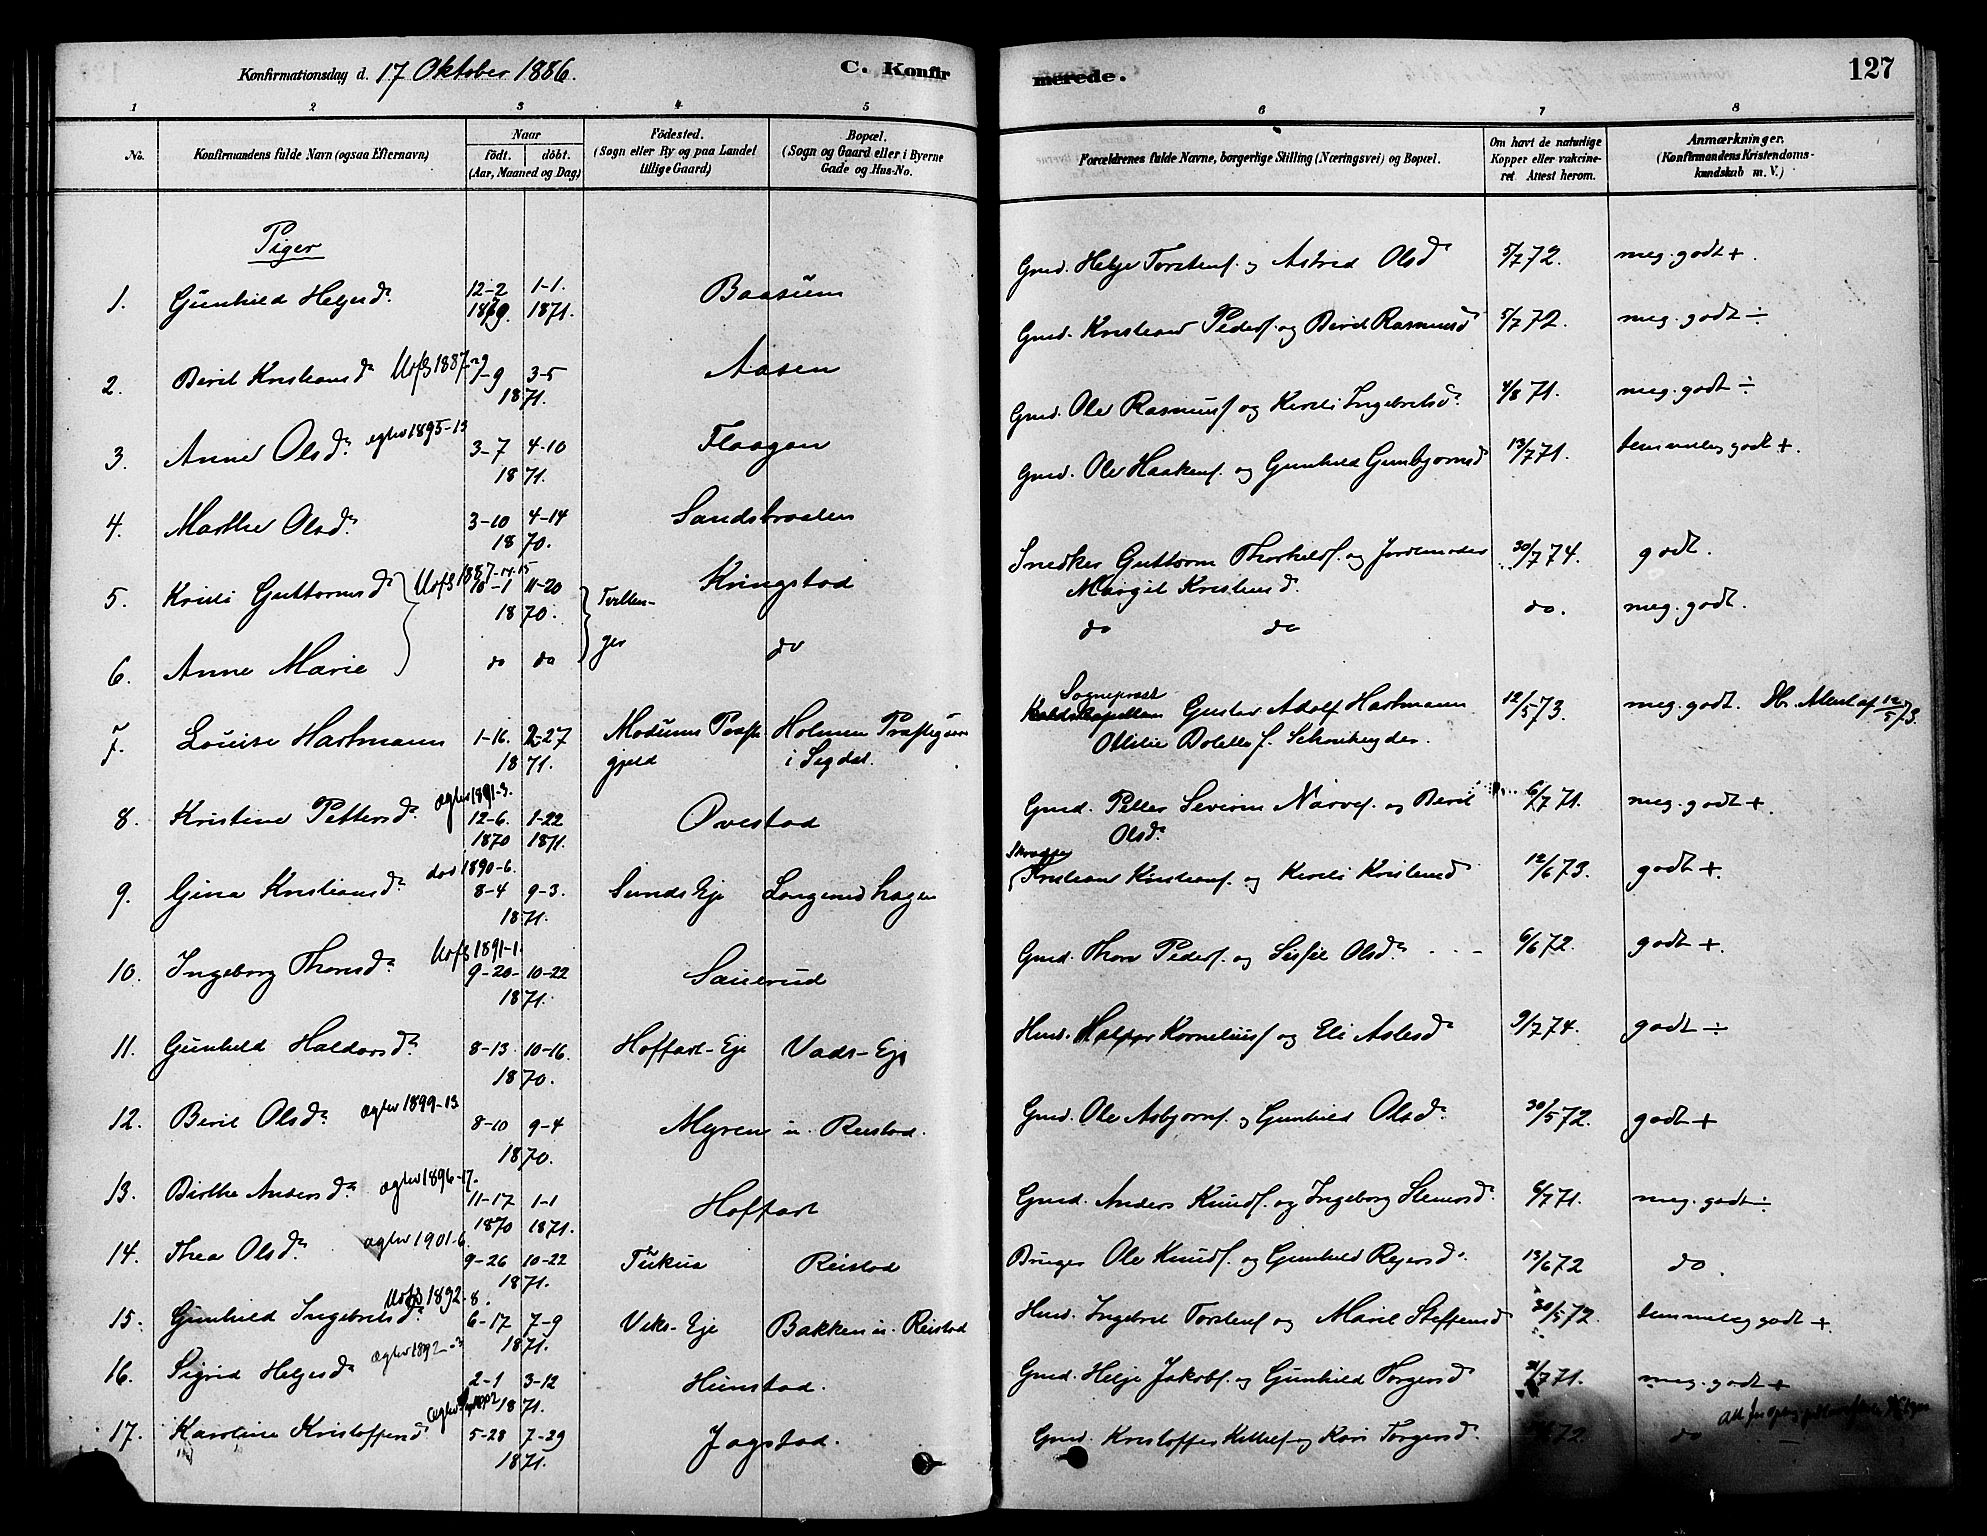 Konfirmationsdag d. 17 Oktober 1886.
C. Konfirmerede.
127
1 2 3 4 5 6 7 8
No.
Konfirmandens fulde Navn (ogsaa Efternavn)
Naar
födt. döbt.
(Aar, Maaned og Dag)
Födested.
(Sogn eller By og paa Landet
tillige Gaard)
Bopæl.
(Sogn og Gaard eller i Byerne
Gade og Hus-No.
Forældrenes fulde Navne, borgerlige Stilling (Næringsvei) og Bopæl.
Om havt de naturlige
Kopper eller vakcine-
ret Attest herom.
Anmærkninger.
(Konfirmandens Kristendoms-
kundskab m. V.)
Piger
1. Gunhild Helgesd. 12-2 1869. 1-1. 1871. Baasum Gmd. Helge Torstens. og Astrid Olsd. 5/7 72. meg. godt +.
2. Beril Kristiansd. Uofs 1887- 7-9 3-5 1871. Aasen Gmd. Kristian Peders. og Beril Rasmusd. 5/7 72. meg. godt ÷
3. Anne Olsd. egtev 1895-13 3-7 4-10 1871. Flaagan Gmd. Ole Rasmus. og Kirsti Ingebretsd. 4/8 71. meg. godt ÷
4. Marthe Olsd. 3-10 4-14 1870. Sandsbraaten Gmd. Ole Haakens. og Gunhild Gunbjornsd. 13/7 71. temmelig godt +.
5. Kristi Guttormsd. Uofs 1887-14.15 10-1 11-20 1870. Tvillin- Kringstad Snedker Guttorm Thorkilds. og Jordemoder 30/7 74. godt.
Margit Kristensd.
6. Anne Marie do do ger do do do do. meg. godt.
7. Louise Hartmann 1-16. 2-27 1871. Modums Præste- gjeld Holmen Præstegaar i Sigdal. Sogneprest Gustav Adolf Hartmann 12/5 73. meg. godt. Hr. Attest af 12/5 73.
Ottilie Dolette f.
8. Kristine Pettersd. Ægtev 1891-3. 12-6. 1870 1-22 1871. Ovestad Gmd. Petter Severin Narves. og Beril 6/7 71. meg. godt +
Olsd.
9. Gina Kristiansd. død 1890-6. 8-4 9-3. 1871. Sunds Eje Langerudhagen Skrædder Kristian Kristians. og Kirsti Kristensd. 12/6 73. godt +.
10. Ingeborg Thorsd. Uofs 1891-1. 9-20- 10-22 1871. Sauerud Gmd. Thor Peders. og Sissil Olsd. 6/6 72. godt +.
11. Gunhild Haldorsd. 8-13. 10-16. 1870. Hoffart-Eje Vads-Eje Husd. Haldor Kornelius. og Eli Aslesd. 9/7 74. godt ÷
12. Beril Olsd. ægtev 1899-13 8-10 9-4 1870. Myren u. Reistad. Gmd. Ole Asbjorns. og Gunhild Olsd. 30/5 72. godt +
13. Birthe Andersd. ægtev 1896-17. 11-17 1870 1-1 1871. Hoffart Gmd. Anders Knuds. og Ingeborg Stenersd. 6/7 71. meg. godt ÷
14. Thea Olsd. ægtev 1901-6. 9-26 10-22 1871. Reistad Bruger Ole Knuds. og Gunhild Rejersd. 13/6 72 do.
15. Gunhild Ingebretsd. Uofs 1892-8. 6-17 7-9 1871. Viks-Eje Bakken u. Reistad Husd. Ingebret Torstens. og Maril Steffensd. 30/5 72. temmelig godt +.
16. Sigrid Helgesd. Ægtev 1892-3 2-1 3-12 1871. Hunstad. Gmd. Helge Jakobs. og Gunhild Torgersd. 7 71. meg. godt +
17. Karoline Kristoffersd. 5-28 7-29 1871. Jogstad. Gmd. Kristoffer Kittels. og Kari Torgersd. 72. do